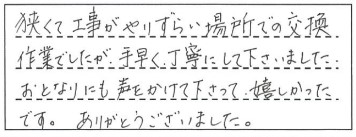 狭くて工事がやりずらい場所での交換
作業でしたが、手早く丁寧にして下さいました。
おとなりにも声をかけて下さって、嬉しかった
です。ありがとうございました。